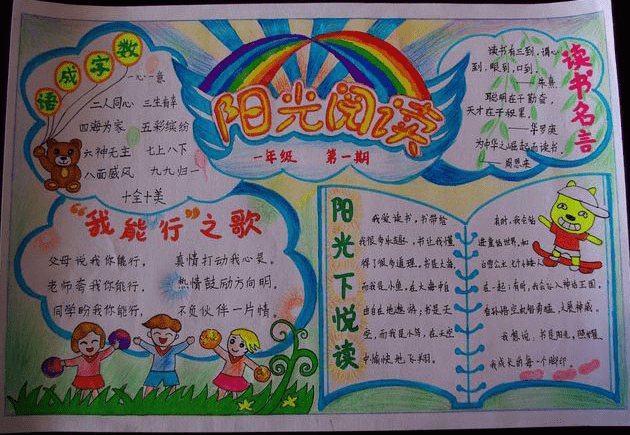 数字成语
一心一意
二人同心 三生有幸
四海为家 五彩缤纷
六神无主 七上八下
八面威风 九九归一
十全十美
阳光阅读
一年级 第一期
读书名言
读书有三到,谓心
到,眼到,口到。
——朱熹
聪明在于勤奋,
天才在于积累。
——华罗庚
为中华之崛起而读书。
——周恩来
“我能行”之歌
父母说我你能行, 真情打动我心灵。
老师夸我你能行, 热情鼓励方向明。
同学盼我你能行, 不负伙伴一片情。
阳光下悦读
我爱读书,书带给
我很多乐趣,书让我懂
得了很多道理。书是大海,
而我是小鱼,在大海中自
由自在地遨游;书是天
空,而我是小鸟,在天空
中愉快地飞翔。
有时,我会钻
进童话世界,和
白雪公主、七个小矮人
在一起;有时,我会 入神话王国,
看孙悟空 ,大展神威。
我想说,书是阳光,照耀
我成长的每一个脚印。